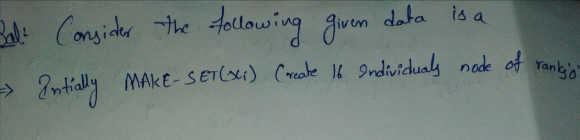 Sol: Consider the following given data is a
⇒ Intially MAKE-SET(xi) Create 16 Individuals node of rank is 0